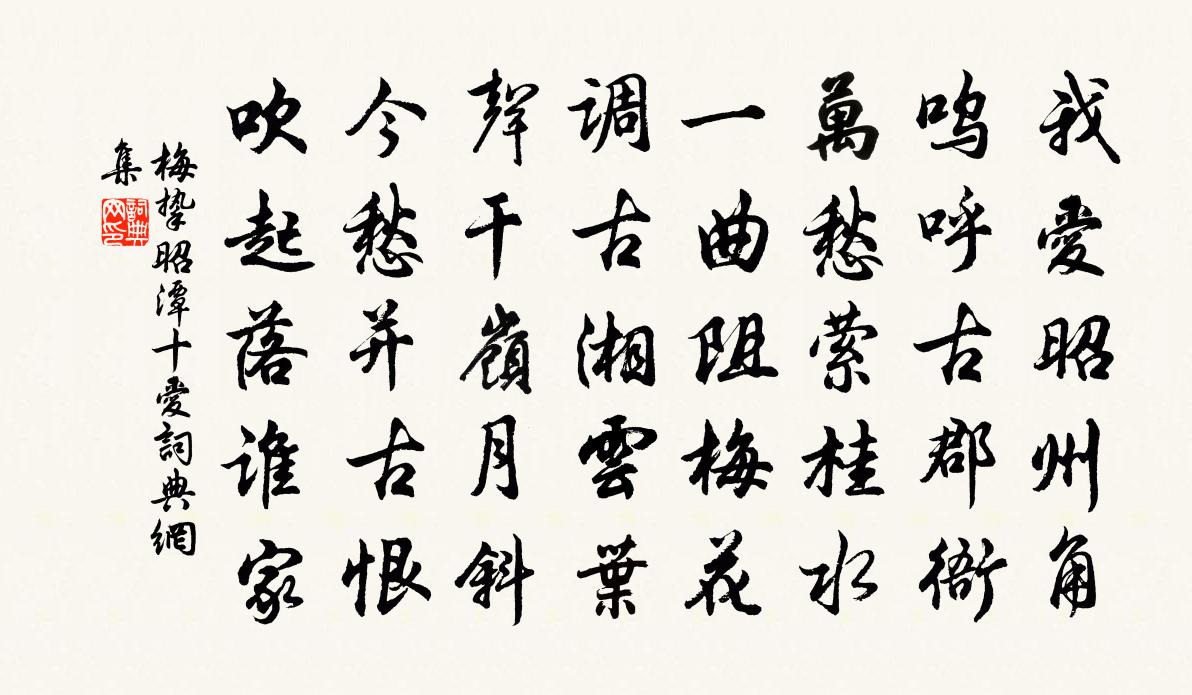 我愛昭州角
呜呼古郡衙
萬愁萦桂水
一曲阻梅花
调古湘雲葉
聲干嶺月斜
今愁并古恨
吹起落谁家
梅挚昭潭十愛詞典網
集
詞典
网印